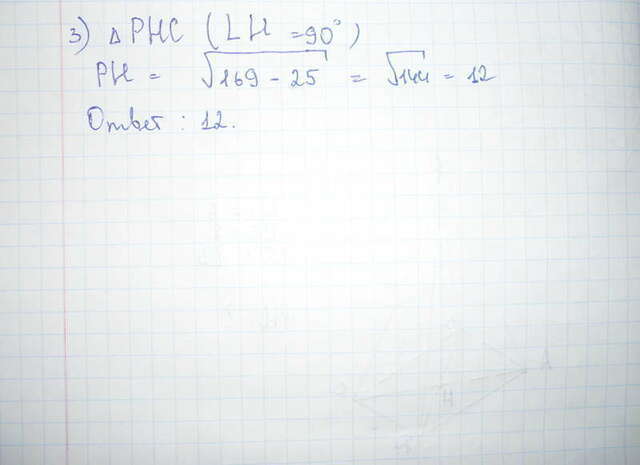 3) △ PHC (∠H = 90°)
PH = √169 - 25 = √144 = 12
Ответ : 12.
A
H